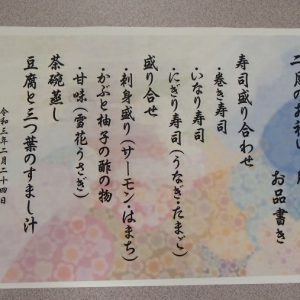 お品書き
寿司盛り合わせ
・巻き寿司
・いなり寿司
・にぎり寿司(うなぎ・たまご)
盛り合せ
・刺身盛り(サーモン・はまち)
・かぶと柚子の酢の物
・甘味(雪花うさぎ)
茶碗蒸し
豆腐と三つ葉のすまし汁
令和三年二月二十四日